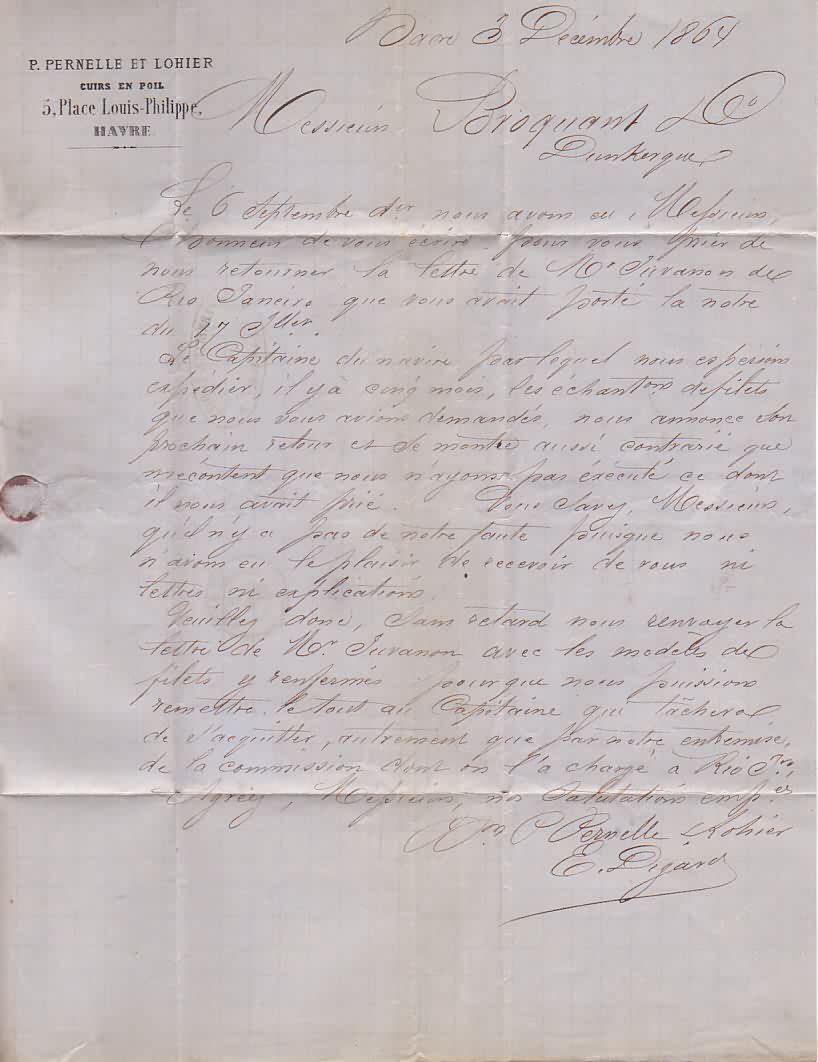 Havre 3 Décembre 1864
P. PERNELLE ET LOHIER
CUIRS EN POIL
5, Place Louis-Philippe,
HAVRE
Messieurs Broquant & Co
Dunkerque
Le 6 Septembre der nous avons eu, Messieurs,
l'honneur de vous écrire pour vous prier de
nous retourner la lettre de Mr Juvanon de
Rio Janeiro que vous avait porté la notre
du 27 Jller.
Le Capitaine du navire par lequel nous espérions
expedier, il y à cinq mois, les échantons de filets
que nous vous avions demandés, nous annonce son
prochain retour et se montre aussi contrarié que
mécontent que nous n'ayons pas éxécuté ce dont
il nous avait prié. Vous savez, Messieurs,
qu'il n'y a pas de notre faute puisque nous
n'avons eu le plaisir de recevoir de vous ni
lettres ni explications.
Veuillez donc, sans retard nous renvoyer la
lettre de Mr. Juvanon avec les modèles de
filets y renfermés pour que nous puissions
remettre le tout au Capitaine qui tâchera
de s'acquitter, autrement que par notre entremise,
de la commission dont on l'a chargé à Rio Jro.
Agréez, Messieurs, nos Salutations empées
Pon P Pernelle & Lohier
E. Digard